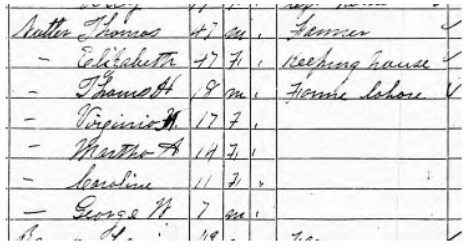 Nutter Thomas 47 m Farmer
– Elizabeth 47 F Keeping house
– Thomas H 18 m Farme labore
– Virginia 17 F
– Martha A 14 F
– Caroline 11 F
– George W 7 m